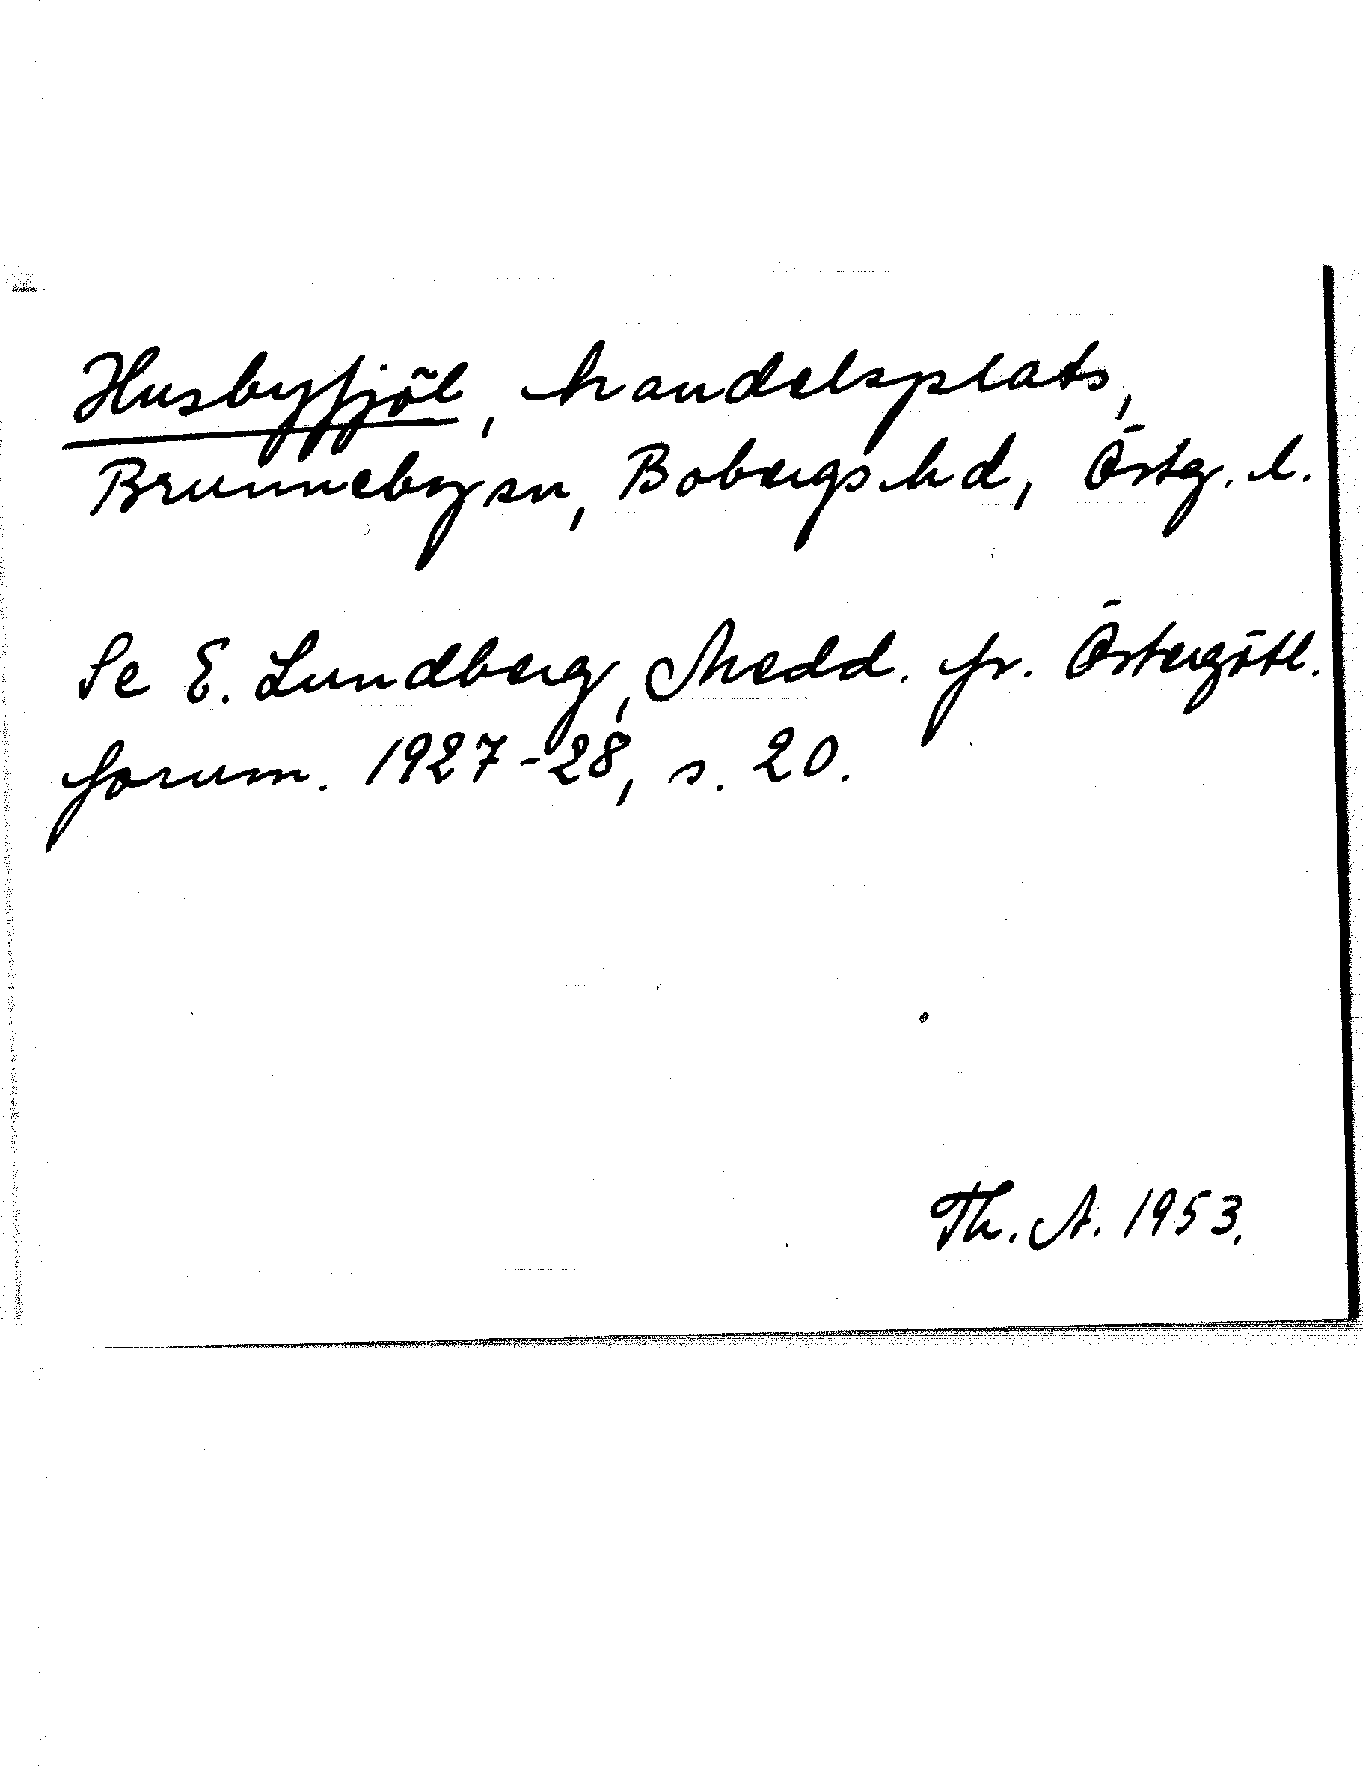 Husbyfjöl, handelsplats,
Brunneby sn, Bobergs hd, Östg. l.
Se E. Lundberg, Medd. fr. Östergötl.
fornm. 1927-28, s. 20.
Th. A. 1953.